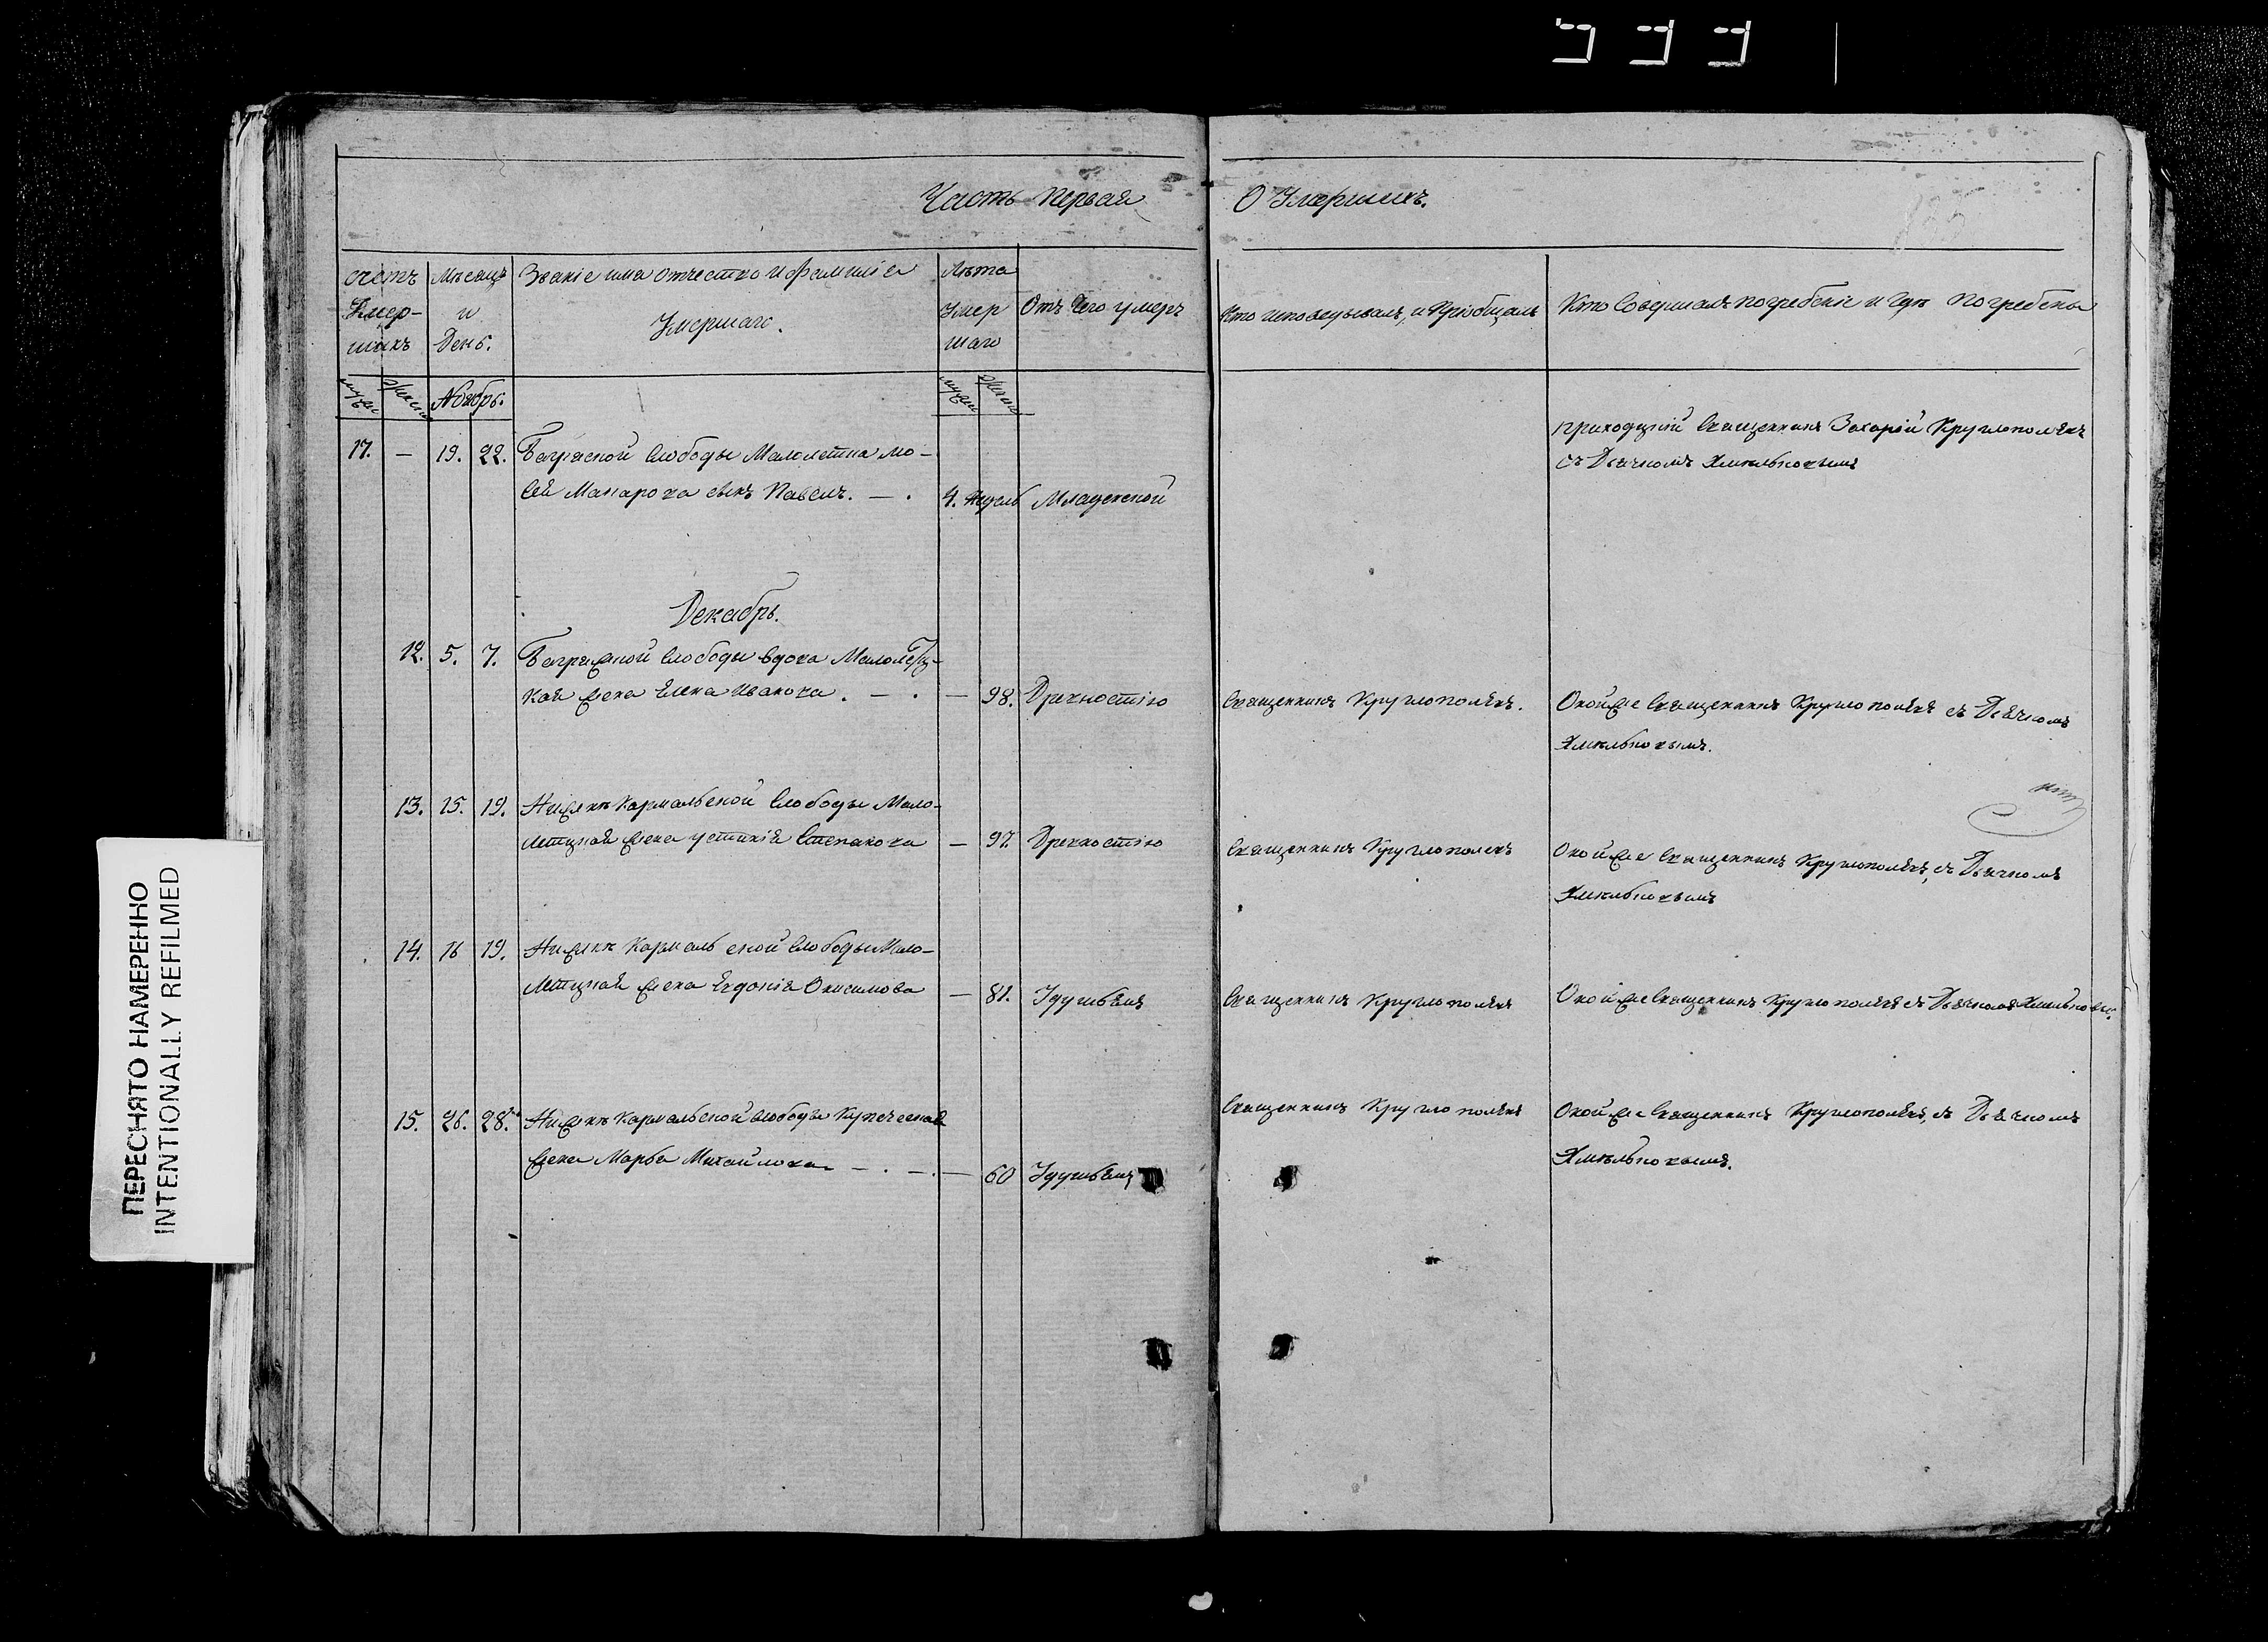 Часть Первая О Умершихъ.
Счетъ Умер-шихъ
Мѣсяцъ и День.
Званіе имя отчество и фамилія Умершаго.
Лѣта Умер шаго
Отъ чего умеръ
Кто исповѣдывалъ, и Приобщалъ
Кто Совершалъ погребеніе и Гдѣ Погребены
Ноябрь.
17. — 19. 22. Слободы
сынъ Павелъ. — . 4. недель Младенской
приходскій Священникъ Захарій Круглополевъ
съ Дьячкомъ Хмѣльновымъ
Декабрь.
12. 5. 7. Слободы вдова
кая жена Елена Иванова. — . — 98. Древностію
Священникъ Круглополевъ.
Оной же Священникъ Круглополевъ съ Дьячкомъ
Хмѣльновымъ.
13. 15. 19. Нижнѣ Кармальской Слободы Мало-
жена Устинія Степанова — 97. Древностію
Священникъ Круглополевъ
Оной же Священникъ Круглополевъ, съ Дьячкомъ
Хмѣльновымъ
14. 16 19. Нижнѣ Кармальской Слободы Мало-
жена Евдокія Онисимова — 81. Удушьемъ
Священникъ Круглополевъ
Оной же Священникъ Круглополевъ съ Дьячкомъ Хмѣльновы.
15. 26. 28. Нижнѣ Кармальской слободы Купеческая
жена Марѳа Михайлова — . — . — 60 Удушьемъ
Священникъ Круглополевъ
Оной же Священникъ Круглополевъ, съ Дьячкомъ
Хмѣльновымъ.
ПЕРЕСНЯТО НАМЕРЕННО
INTENTIONALLY REFILMED